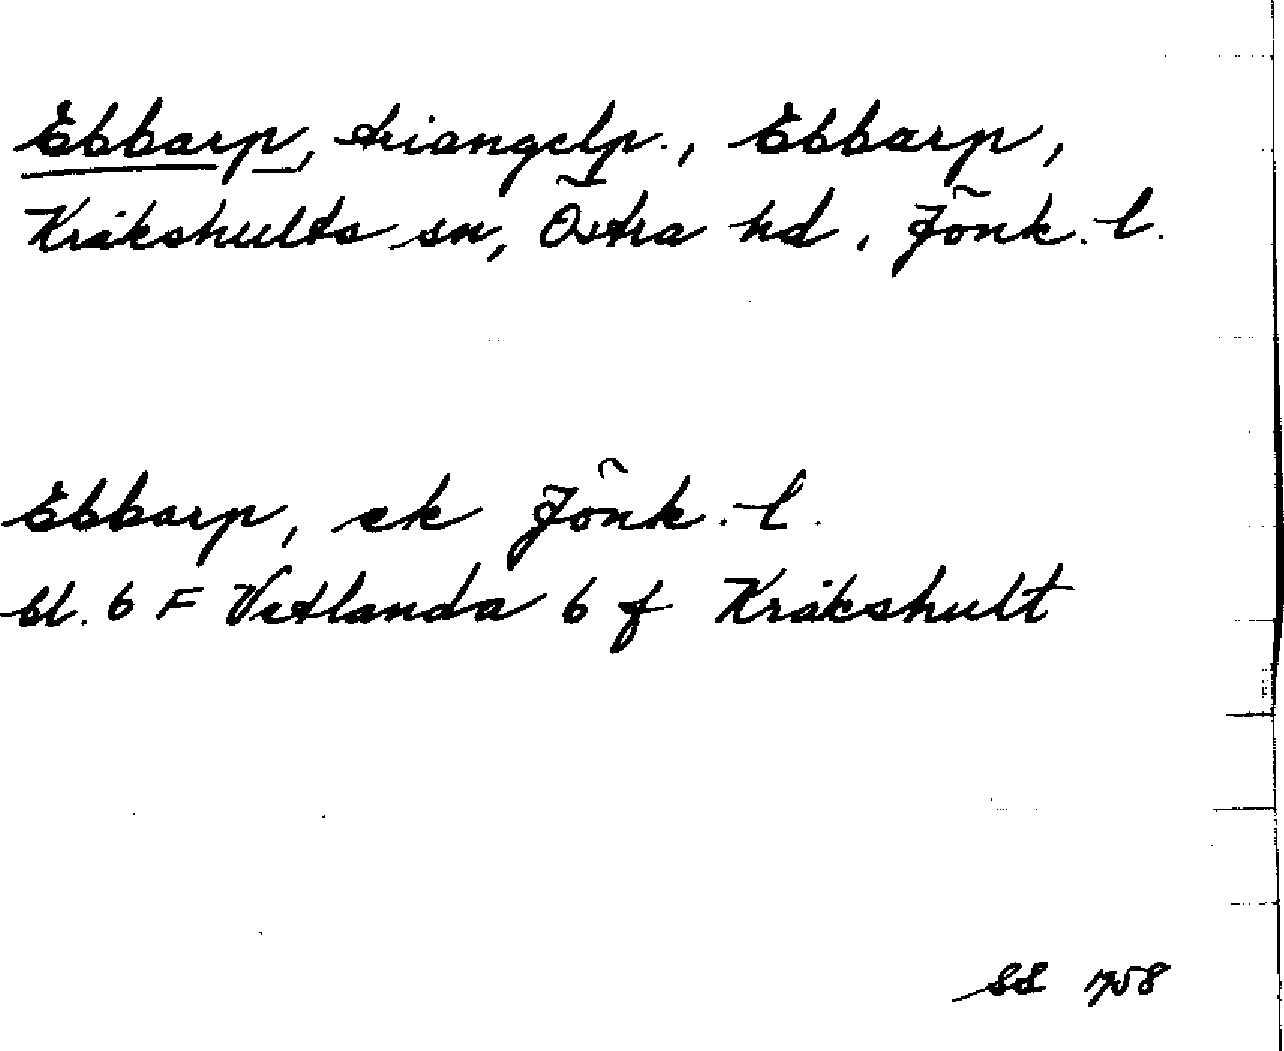 Ebbarp, triangelp., Ebbarp,
Kråkshults sn, Östra hd, Jönk. l.
Ebbarp, ek Jönk. l.
bl. 6 F Vetlanda 6 f Kråkshult
SS 1958